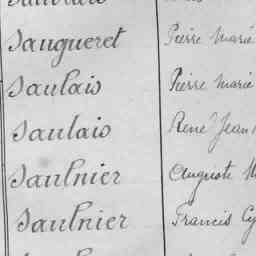 Saugueret Pierre Marie
Saulais Pierre Marie
Saulais René Jean
Saulnier Auguste
Saulnier Francis